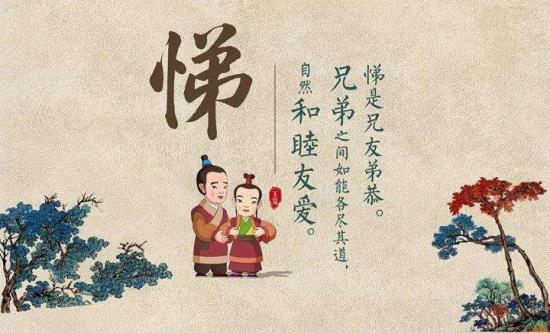 悌
悌是兄友弟恭。
兄弟之间如能各尽其道，
自然和睦友爱。